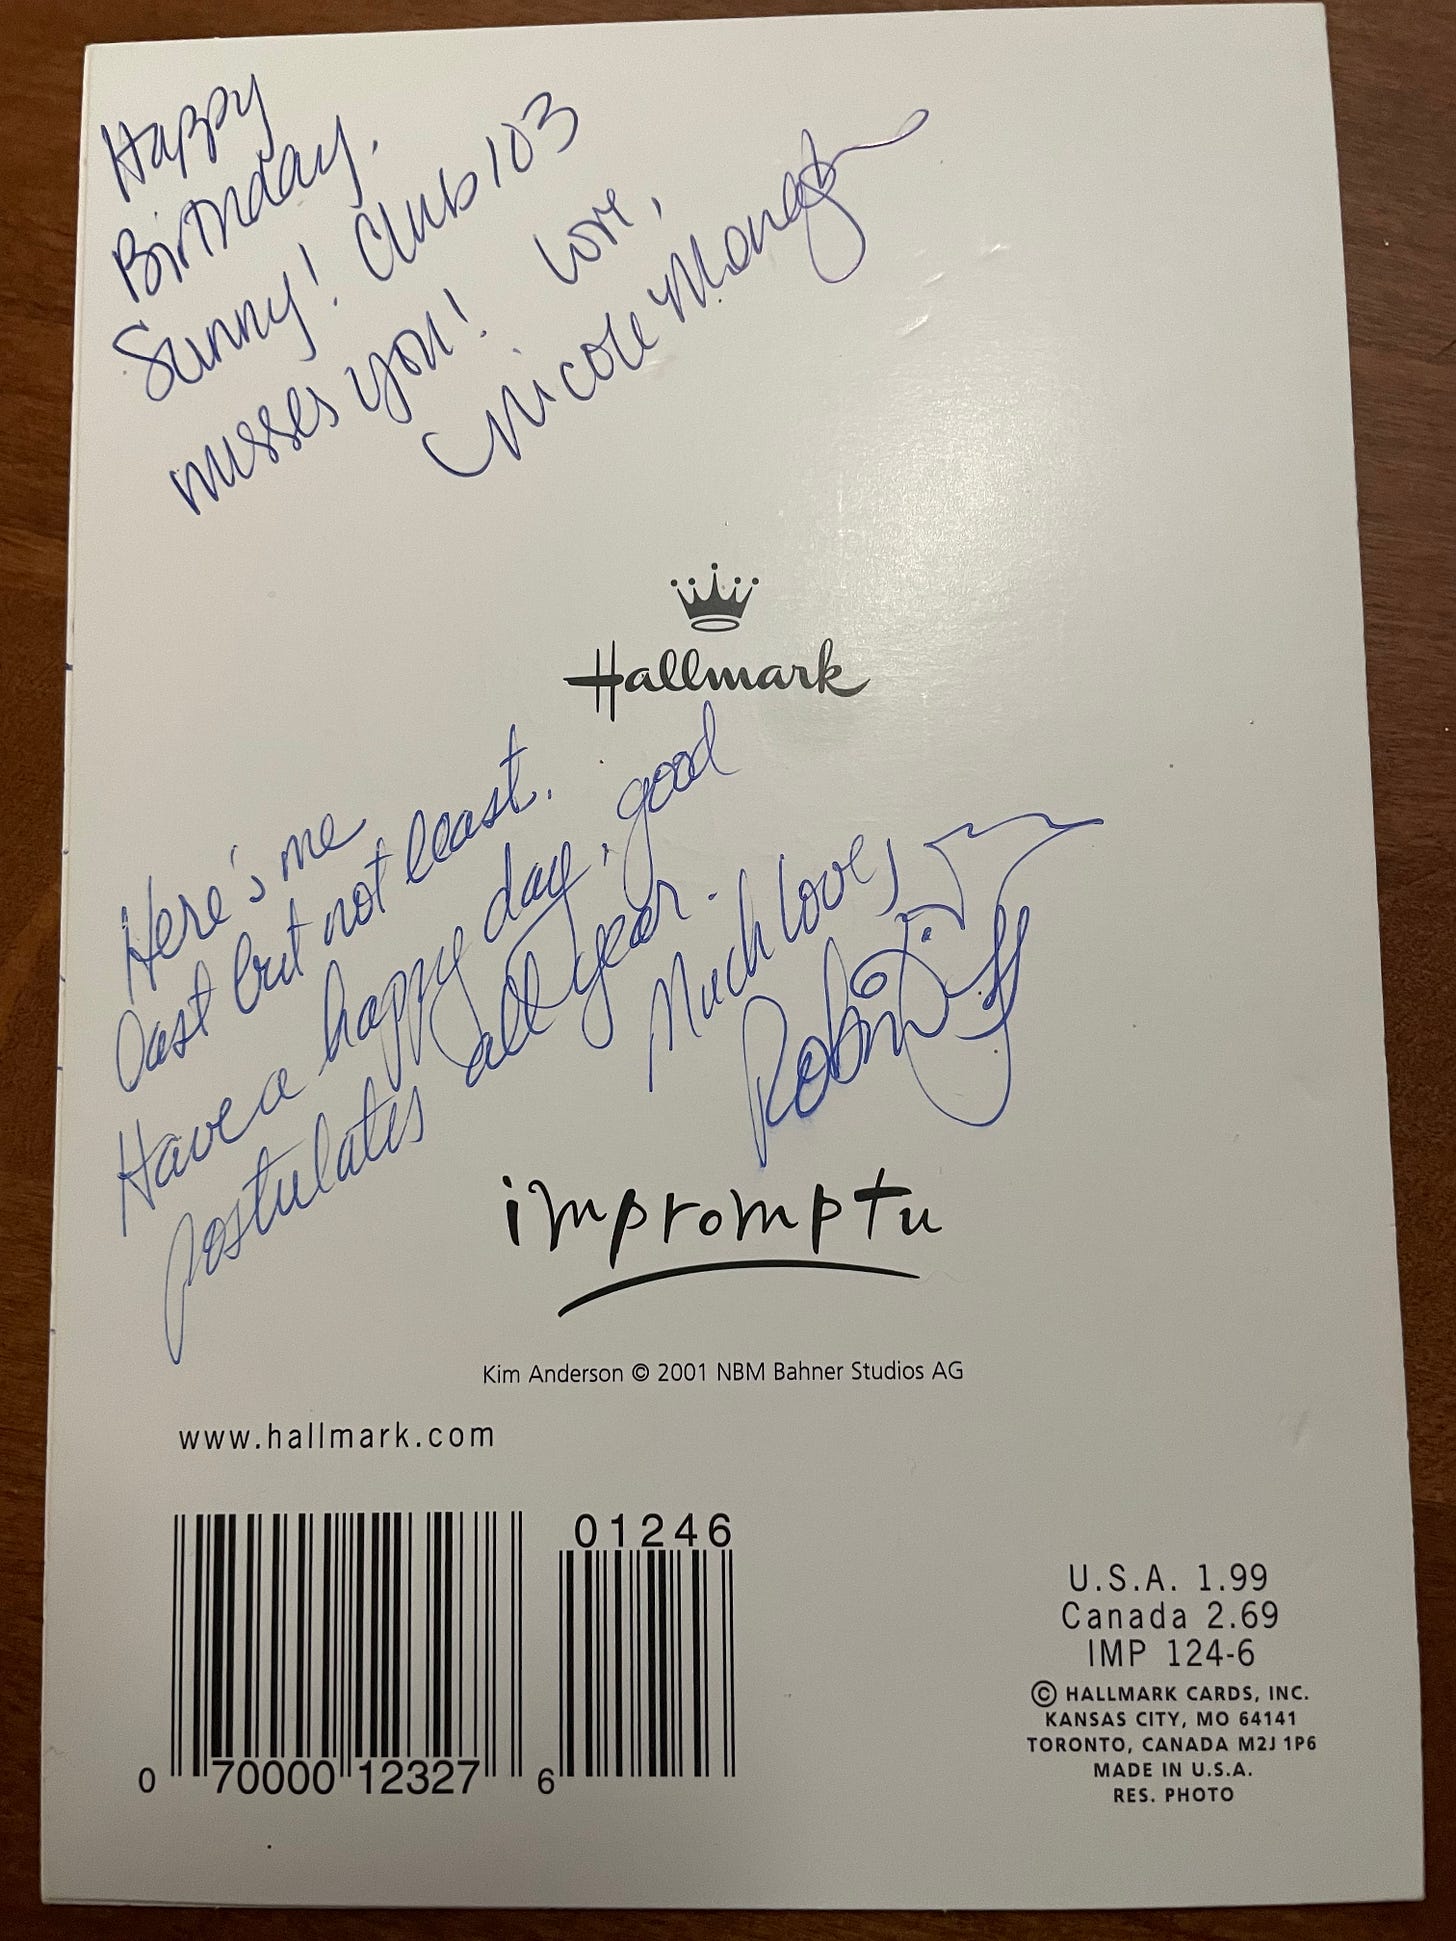 Happy
Birthday,
Sunny! Club 103
misses you! Love,
Nicole
Hallmark
Here's me
last but not least.
Have a happy day, good
postulates all year.
Much love,
Robin
impromptu
Kim Anderson © 2001 NBM Bahner Studios AG
www.hallmark.com
01246
0 70000 12327 6
U.S.A. 1.99
Canada 2.69
IMP 124-6
© HALLMARK CARDS, INC.
KANSAS CITY, MO 64141
TORONTO, CANADA M2J 1P6
MADE IN U.S.A.
RES. PHOTO